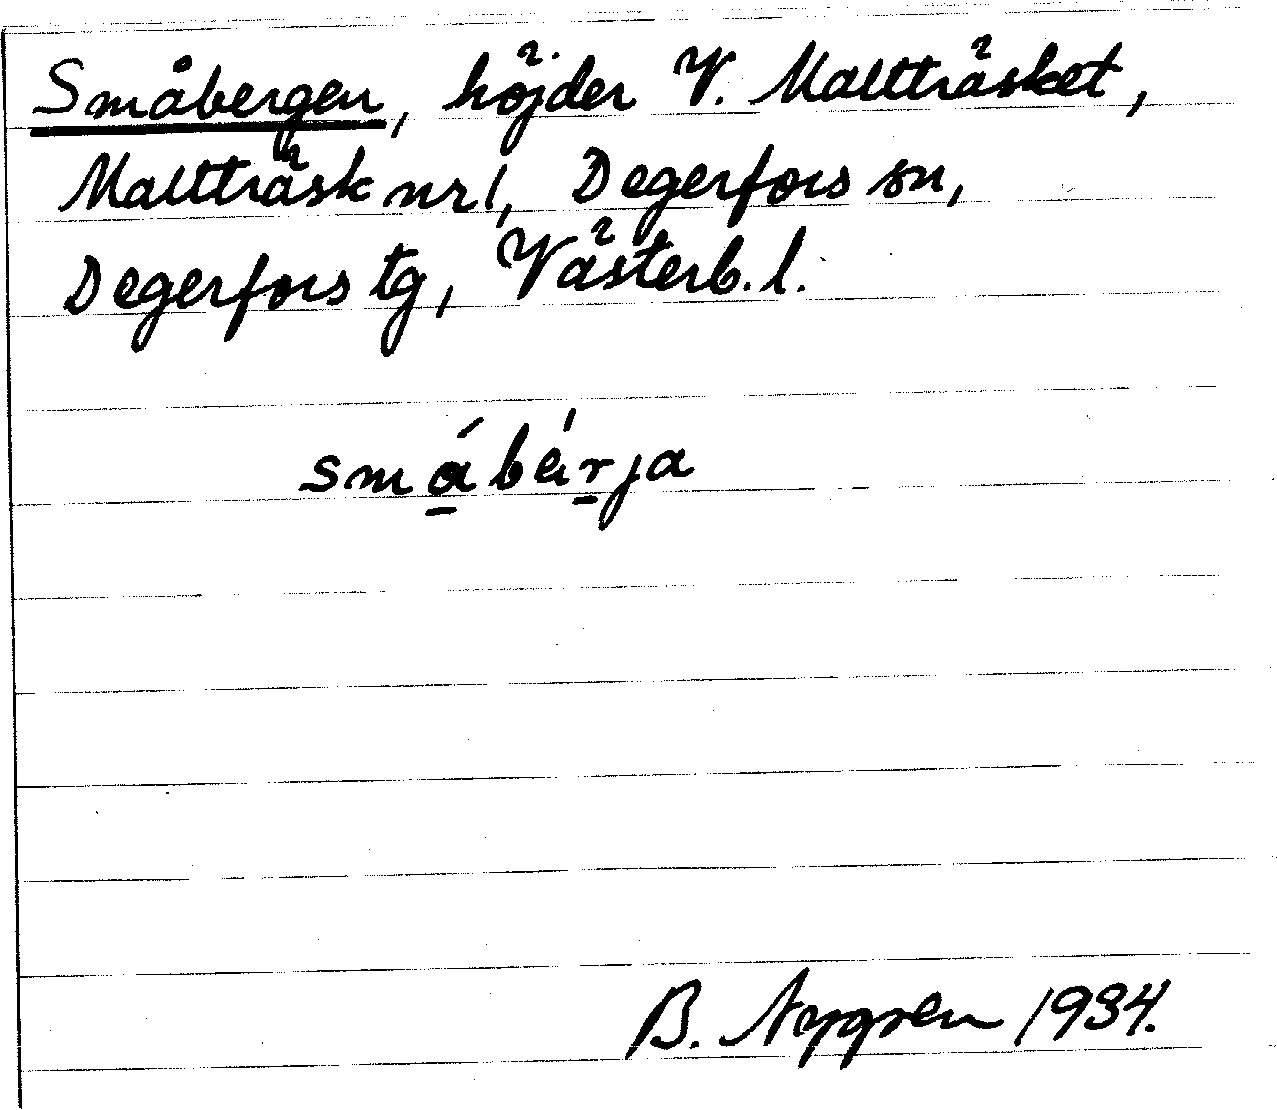 Småbergen, höjder V. Maltträsket,
Maltträsk nr 1, Degerfors sn,
Degerfors tg, Västerb. l.
småbärja
B. Nygren 1934.